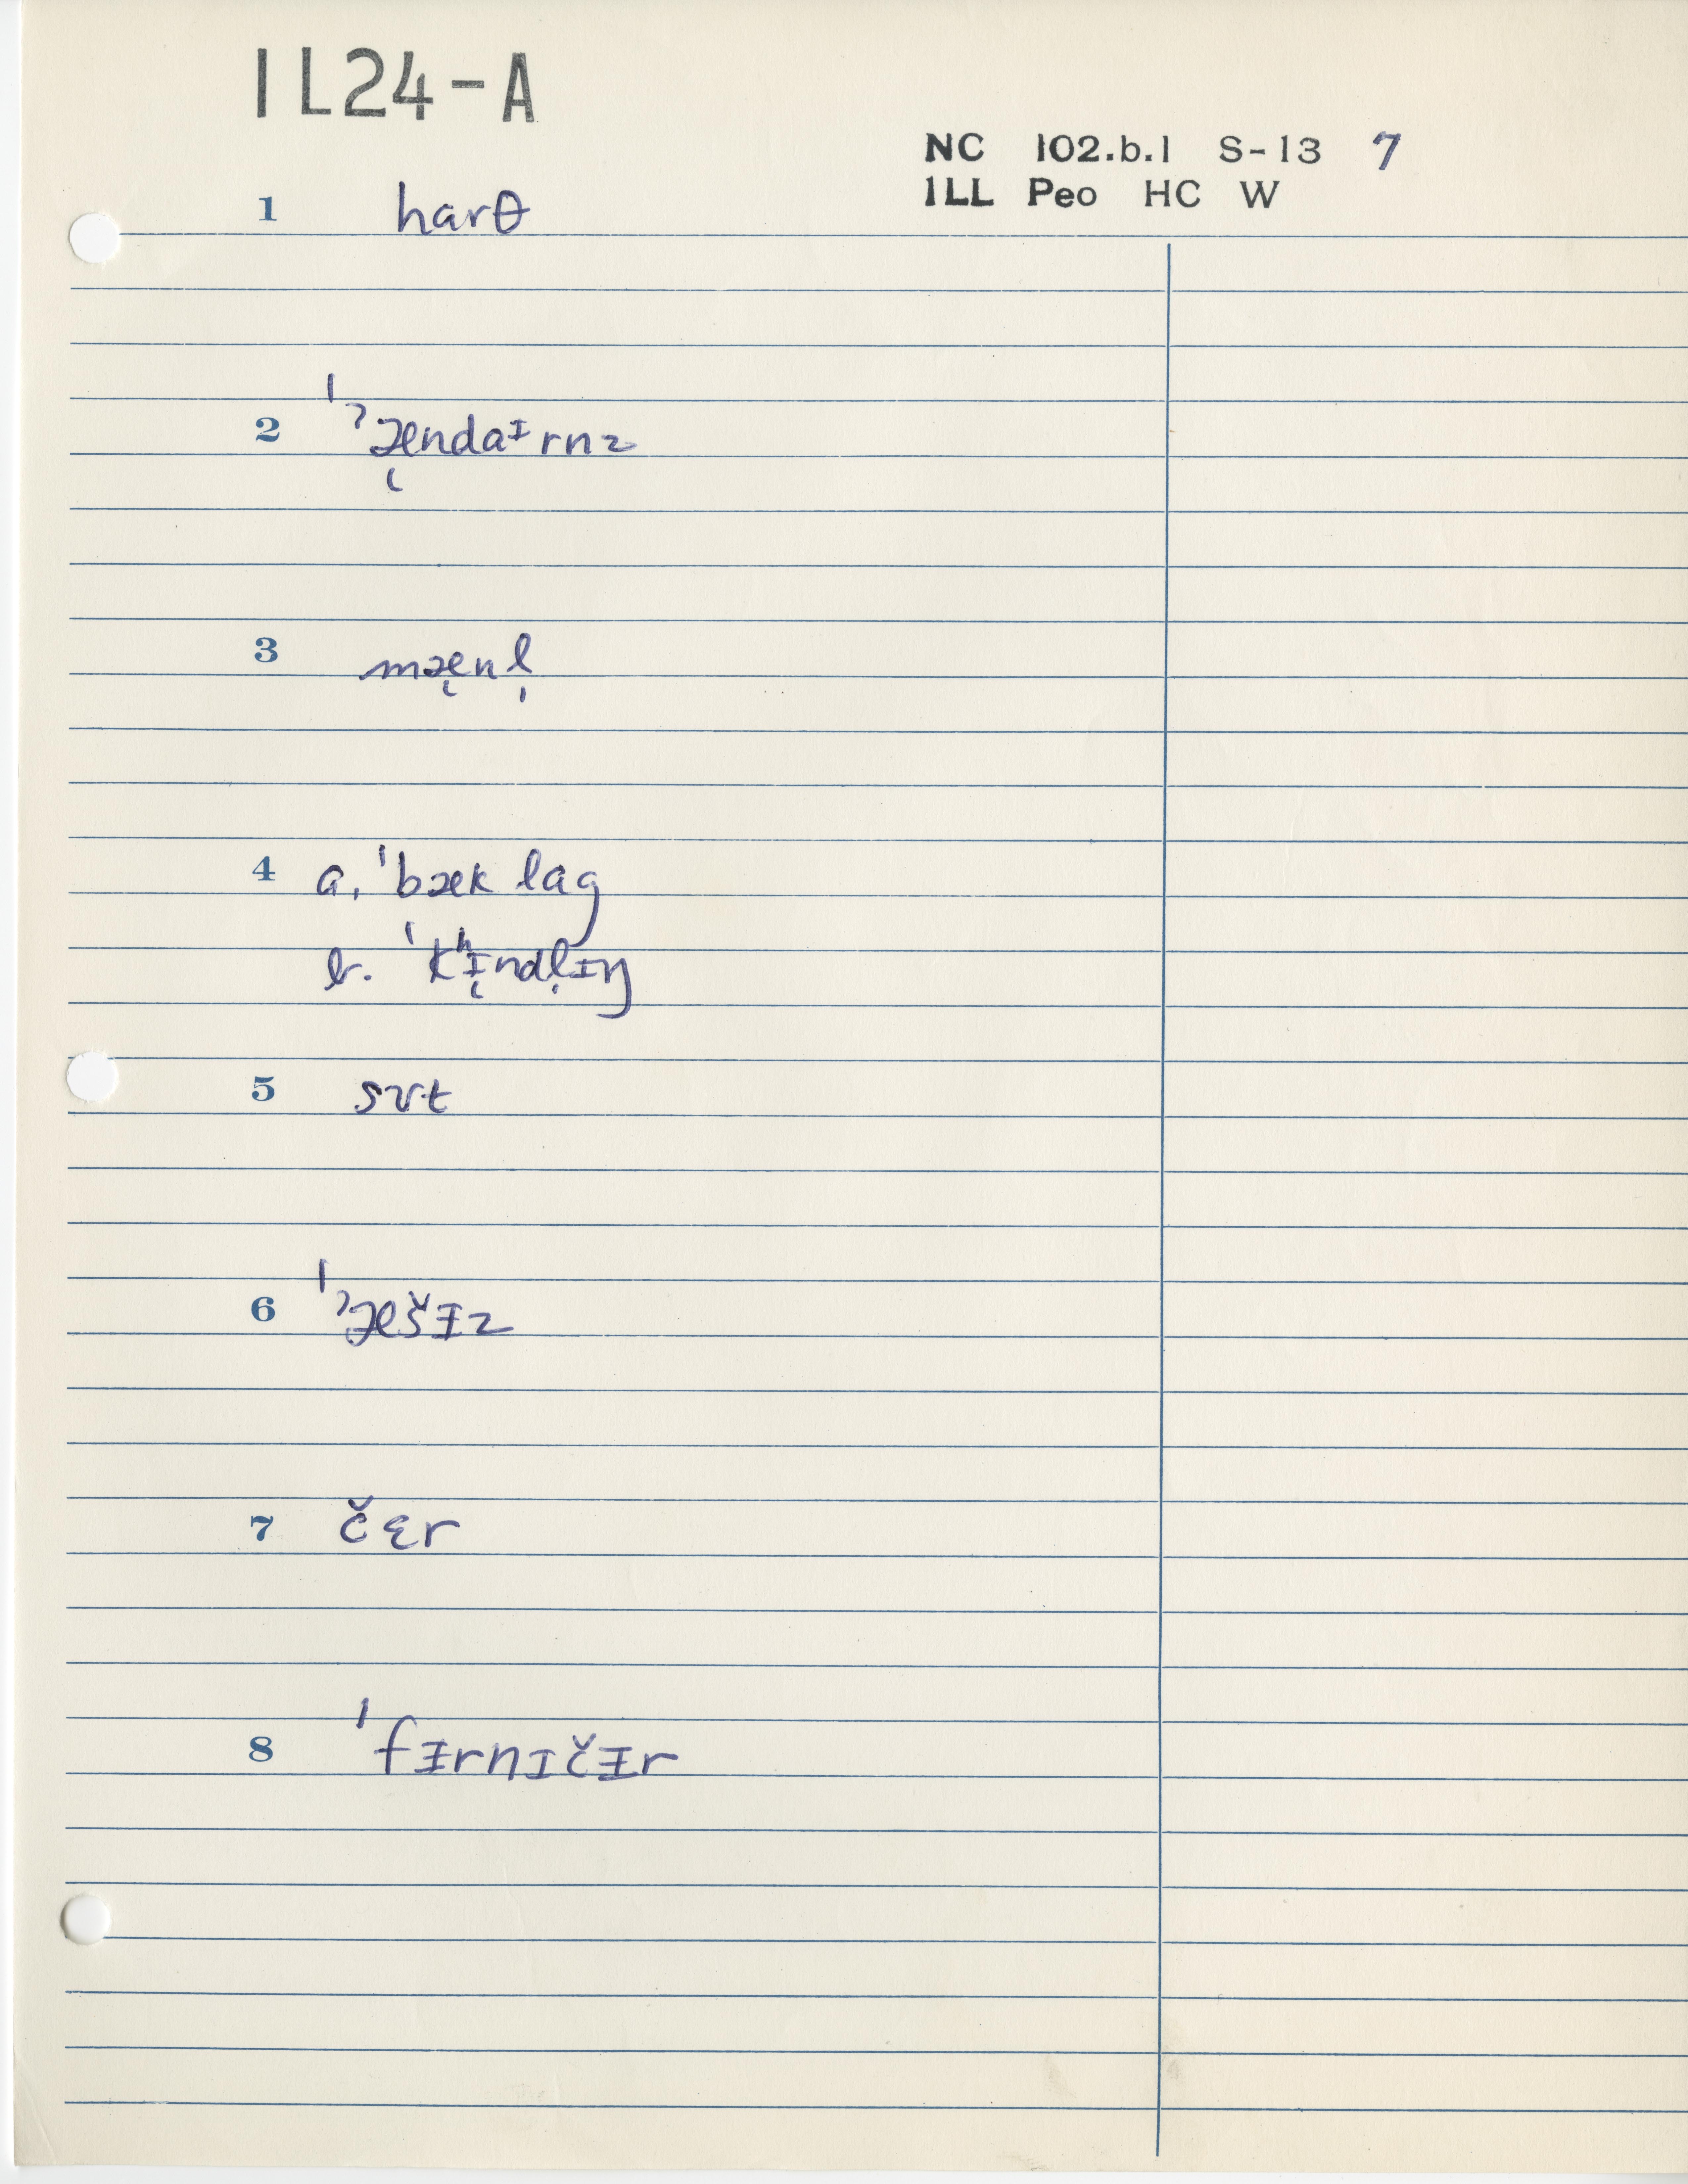 1L24-A
NC 102.b.1 S-13 7
1LL Peo HC W
1 harθ
2 ˈˀæ̨ndaᵻrnz
3 mæ̨nl̩
4 a. ˈbæk lɑg
b. ˈkʰɪ̨ndl̩ɪŋ
5 sᴜt
6 ˈˀæšᵻz
7 čɛr
8 ˈfᵻrnɪčᵻr